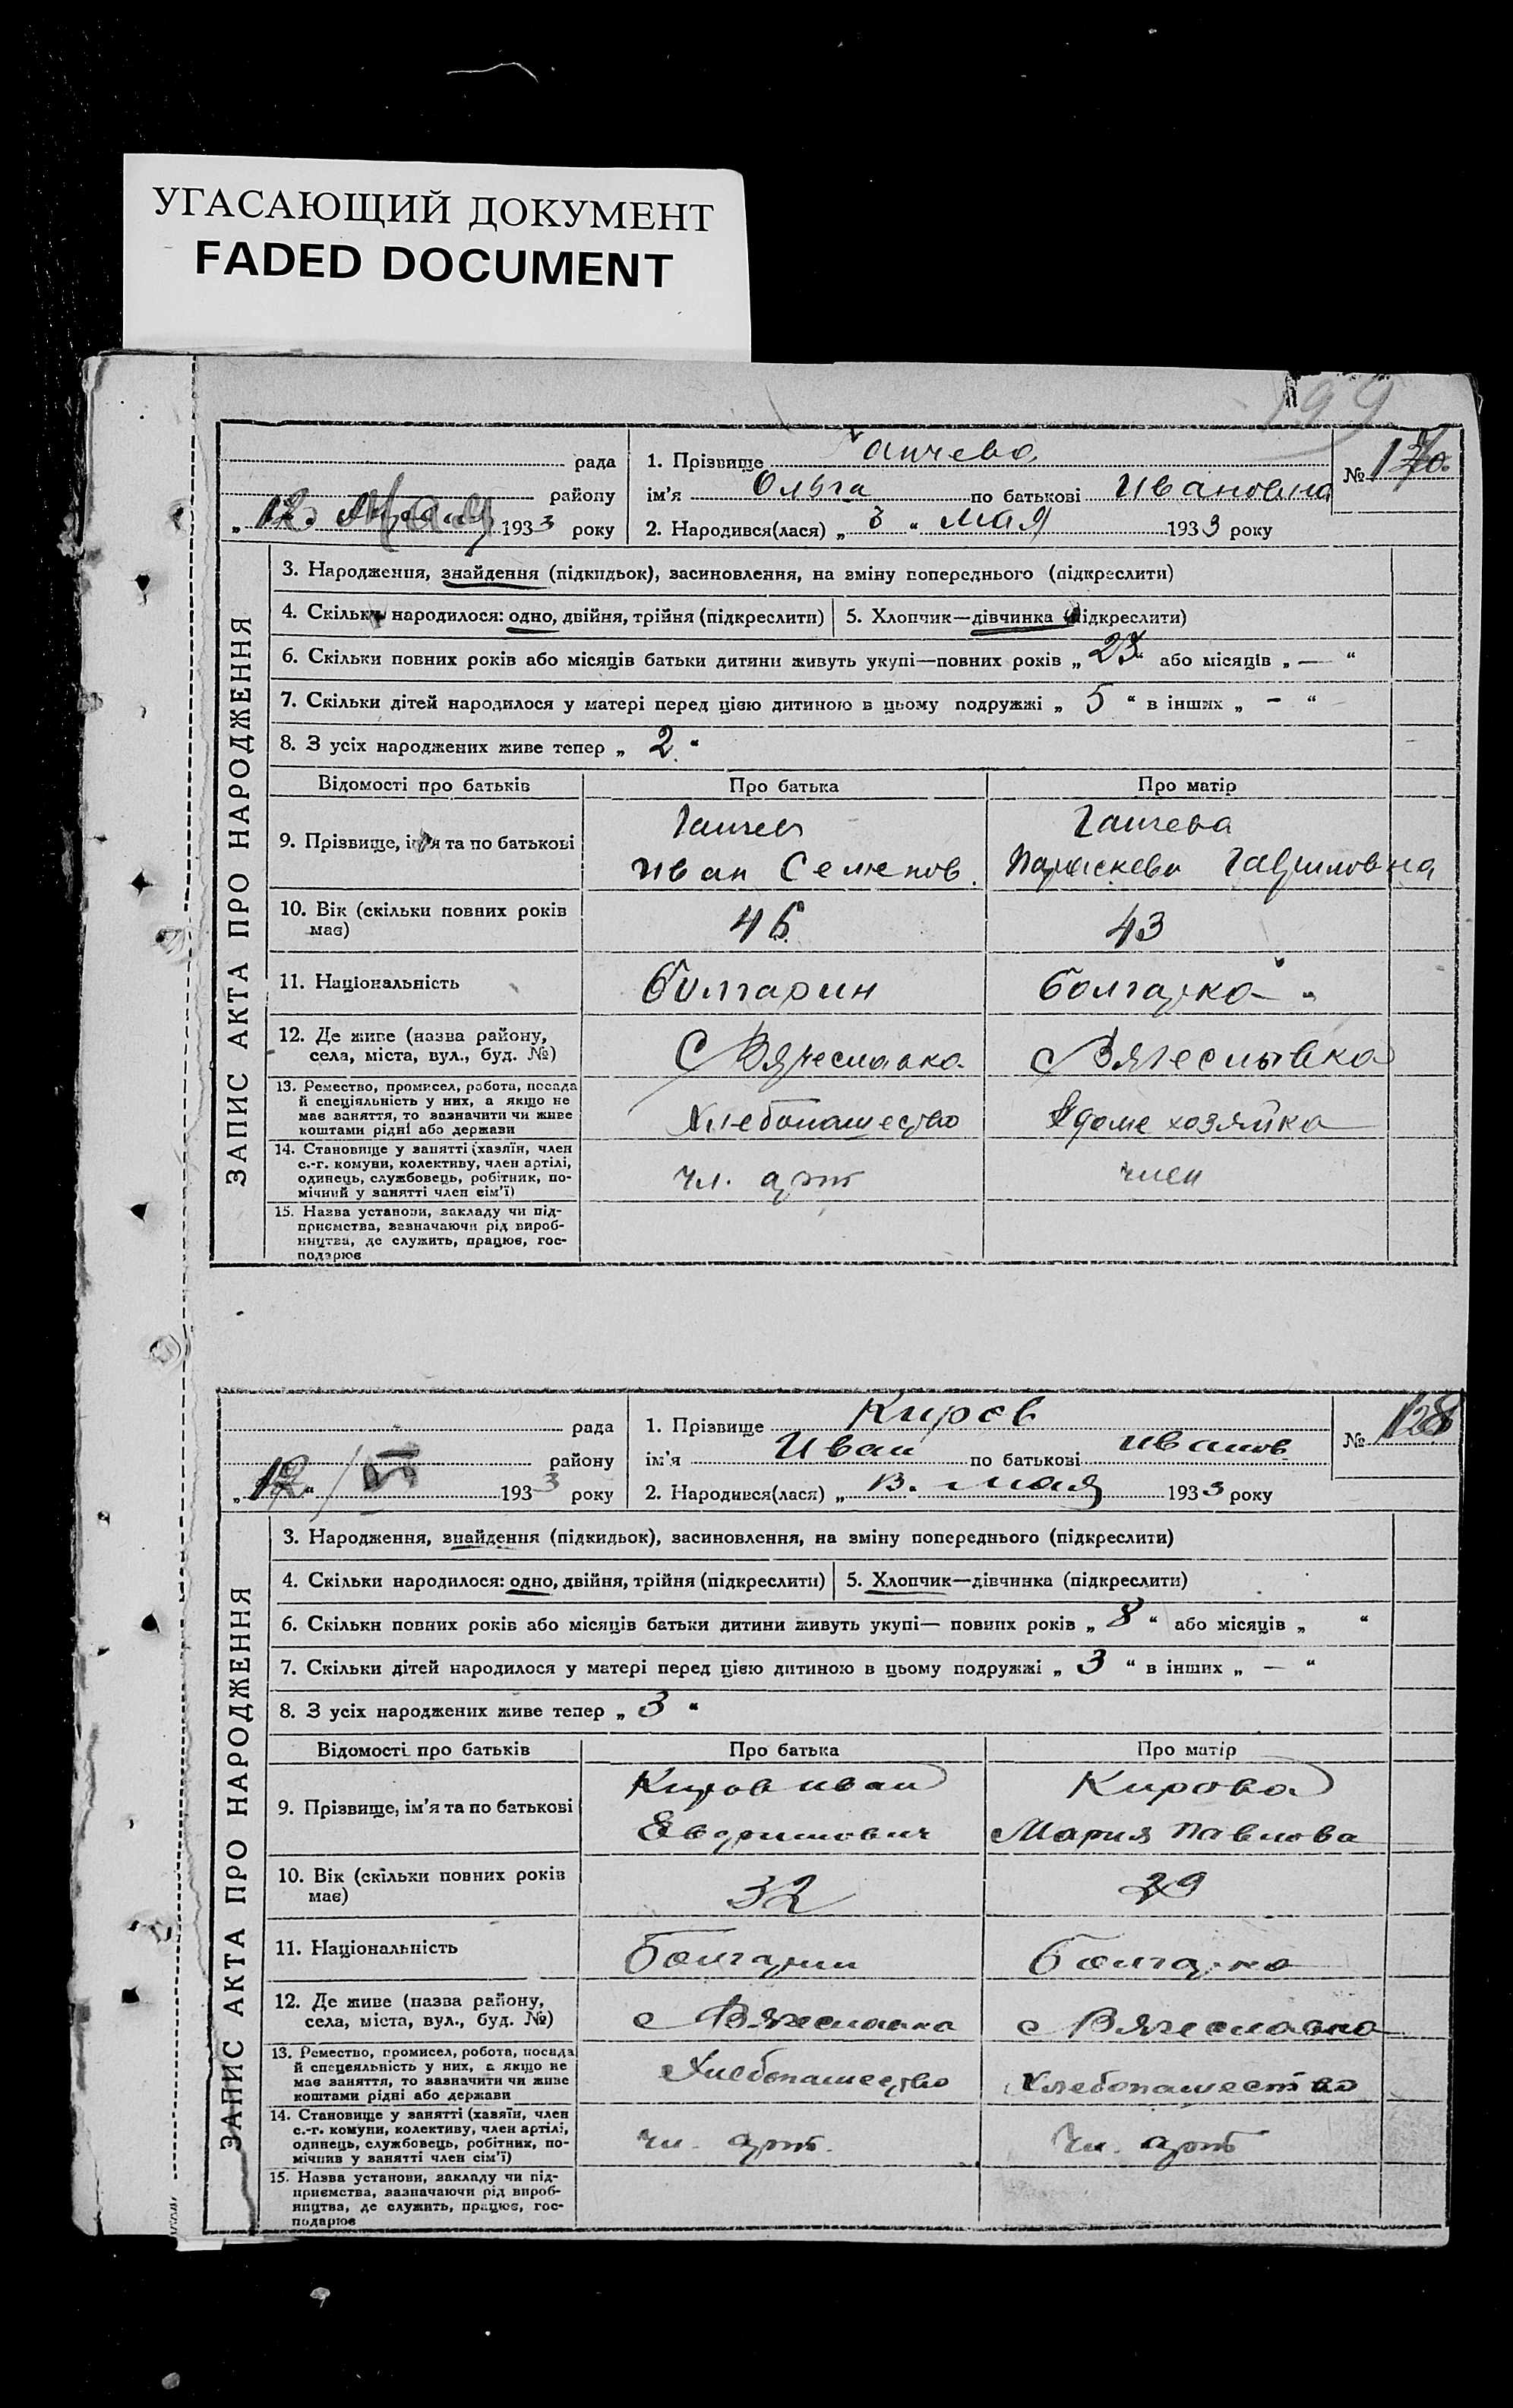 УГАСАЮЩИЙ ДОКУМЕНТ
FADED DOCUMENT
199
рада
району
1933 року
1. Прізвище Ганчева
ім'я Ольга по батькові Ивановна
2. Народився(лася) „ 3 “ мая 1933 року
№
ЗАПИС АКТА ПРО НАРОДЖЕННЯ
3. Народження, знайдення (підкидьок), засиновлення, на зміну попереднього (підкреслити)
4. Скільки народилося: одно, двійня, трійня (підкреслити) 5. Хлопчик—дівчинка (підкреслити)
6. Скільки повних років або місяців батьки дитини живуть укупі—повних років „ 23 “ або місяців „ — “
7. Скільки дітей народилося у матері перед цією дитиною в цьому подружжі „ 5 “ в інших „ - “
8. З усіх народжених живе тепер „ 2. “
Відомості про батьків Про батька Про матір
9. Прізвище, ім'я та по батькові
Ганчев
Иван Семенов.
Ганчева
Параскева Гавриловна
10. Вік (скільки повних років має) 46. 43
11. Національність болгарин болгарка
12. Де живе (назва району, села, міста, вул., буд. №) С Вячеславка с Вячеславка
13. Ремество, промисел, робота, посада й спеціяльність у них, а якщо не має заняття, то зазначити чи живе коштами рідні або держави Хлебопашество В доме хозяйка
14. Становище у занятті (хазяїн, член с.-г. комуни, колективу, член артілі, одинець, службовець, робітник, помічний у занятті член сім'ї) чл. арт член
15. Назва установи, закладу чи підприємства, зазначаючи рід виробництва, де служить, працює, господарює
рада
району
1933 року
1. Прізвище Киров
ім'я Иван по батькові Иванов
2. Народився(лася) „ мая 1933 року
№ 128
ЗАПИС АКТА ПРО НАРОДЖЕННЯ
3. Народження, знайдення (підкидьок), засиновлення, на зміну попереднього (підкреслити)
4. Скільки народилося: одно, двійня, трійня (підкреслити) 5. Хлопчик—дівчинка (підкреслити)
6. Скільки повних років або місяців батьки дитини живуть укупі— повних років „ 8 “ або місяців „ “
7. Скільки дітей народилося у матері перед цією дитиною в цьому подружжі „ 3 “ в інших „ — “
8. З усіх народжених живе тепер „ 3 “
Відомості про батьків Про батька Про матір
9. Прізвище, ім'я та по батькові
Киров Иван
Кирова
Мария Павлова
10. Вік (скільки повних років має) 32 29
11. Національність Болгарин Болгарка
12. Де живе (назва району, села, міста, вул., буд. №) с Вячеславка с Вячеславка
13. Ремество, промисел, робота, посада й спецеяльність у них, а якщо не має заняття, то зазначити чи живе коштами рідні або держави Хлебопашество Хлебопашество
14. Становище у занятті (хазяїн, член с.-г. комуни, колективу, член артілі, одинець, службовець, робітник, помічнив у занятті член сім'ї) чл. арт. чл. арт
15. Назва установи, закладу чи підприємства, зазначаючи рід виробництва, де служить, працює, господарює